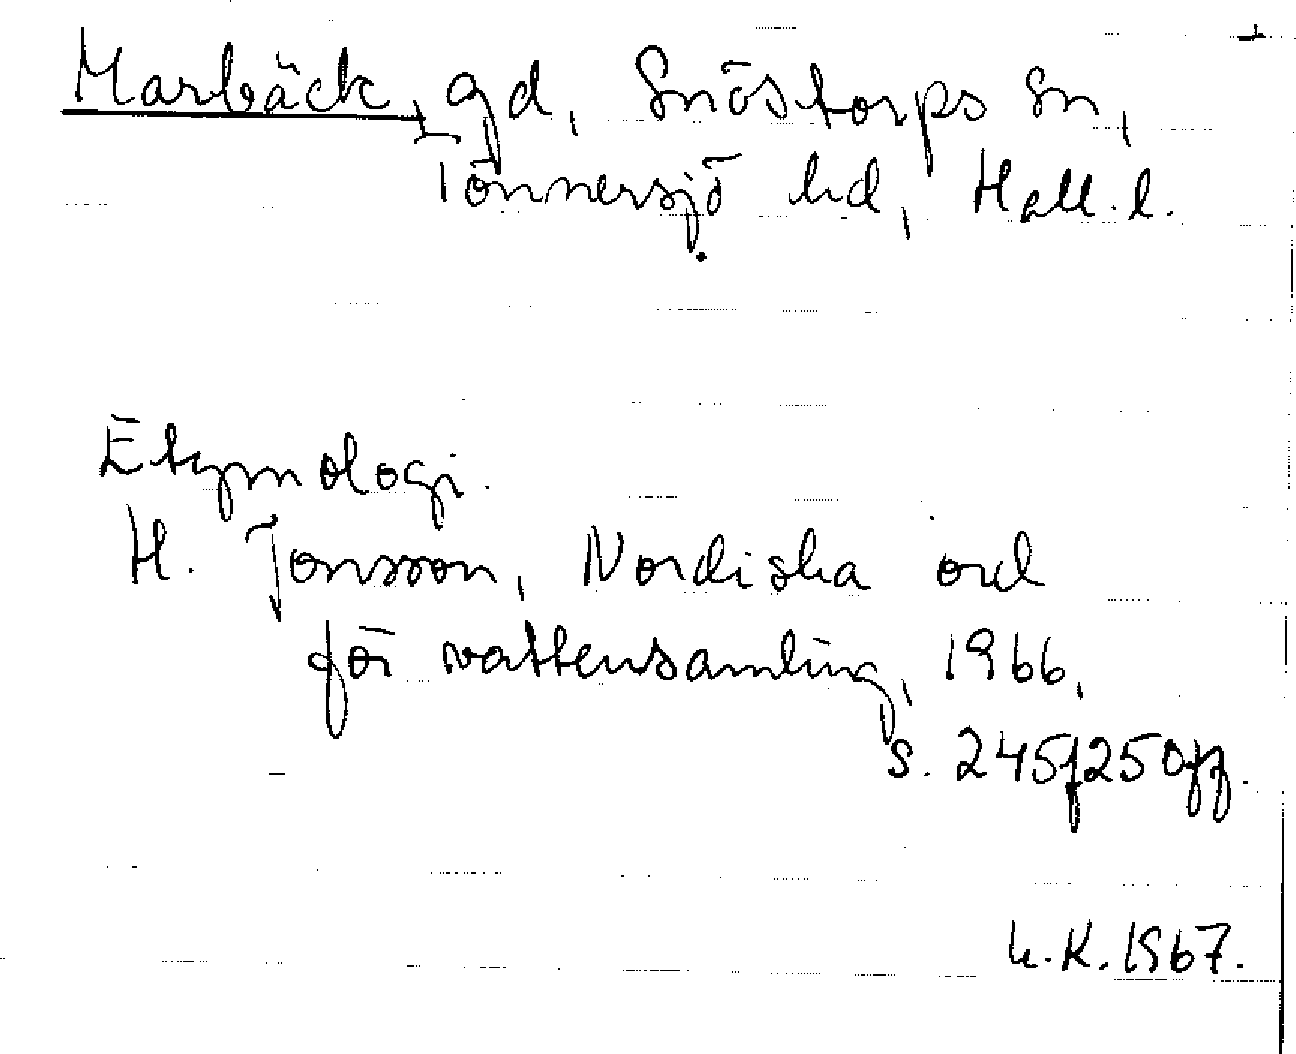 Marbäck, gd, Snöstorps sn,
Tönnersjö hd, Hall. l.
Etymologi.
H. Jonsson, Nordiska ord
för vattensamling, 1966,
s. 245f 250ff.
K. 1967.